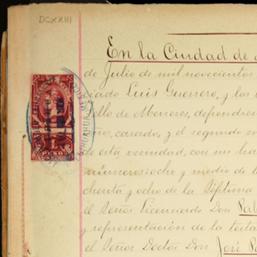 DCXXIII
En la Ciudad de
de Julio de mil novecientos
ciado Luis Guerrero, y los
Tello de Meneses, defensores
ño, casados, y el segundo
de esta vecindad, con
número ocho y medio de la
chenta y ocho de la Séptima
el Señor Licenciado Don Pab
y representación de la testa
el Señor Doctor Don José
PESO